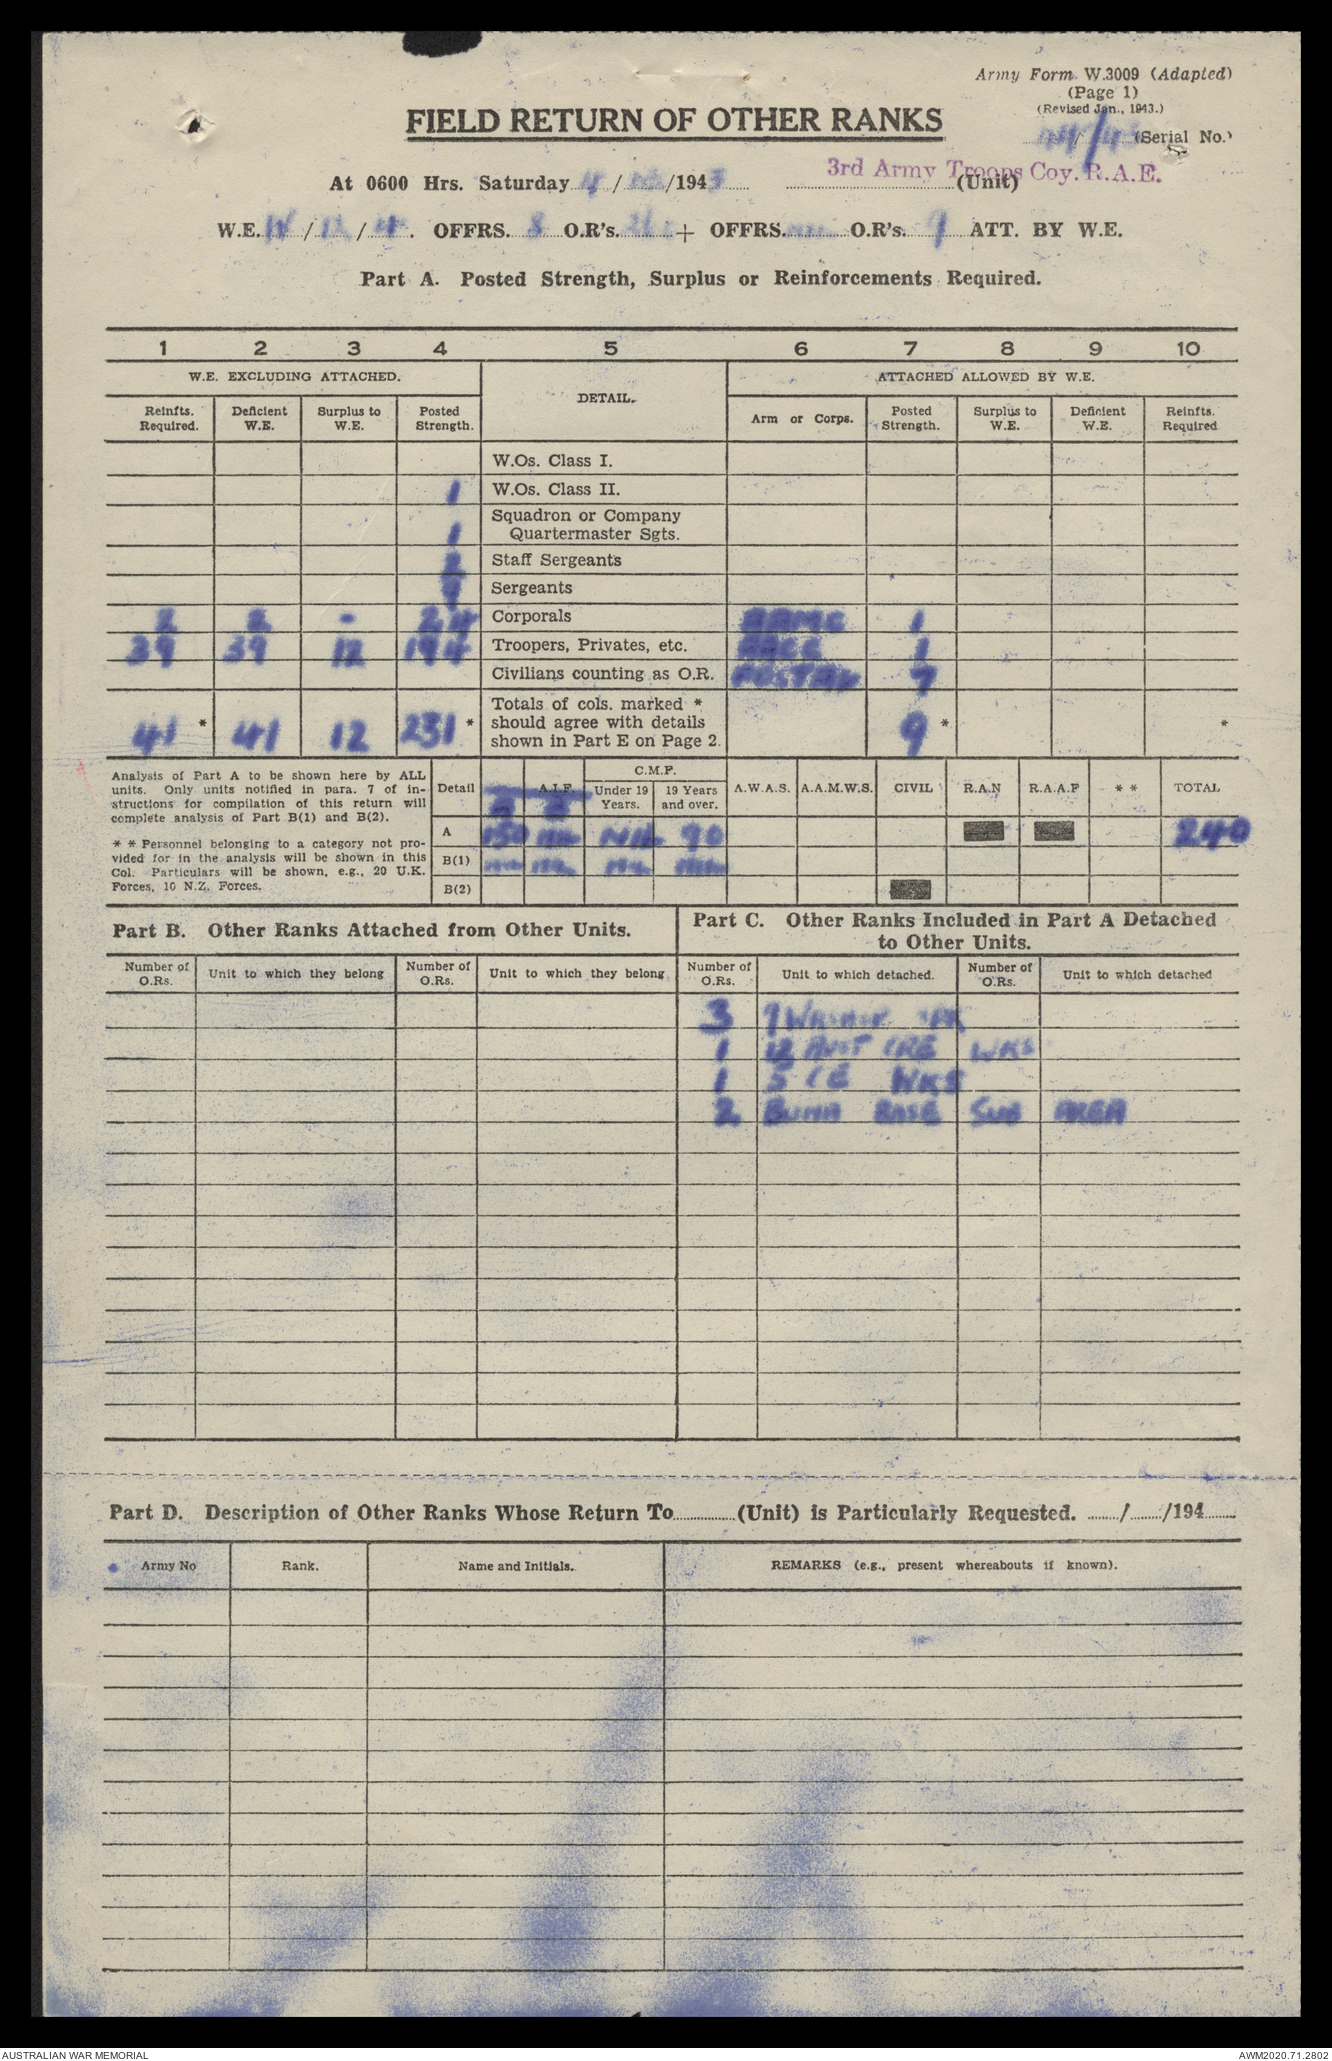 Army Form W.3009 (Adapted)
(Page 1)
(Revised Jan., 1943.)
FIELD RETURN OF OTHER RANKS
(Serial No.)
3rd Army Troops Coy. R.A.E.
At 0600 Hrs. Saturday / /1943 (Unit)
W.E. / / . OFFRS. 8 O.R's. + OFFRS. O.R's. 9 ATT. BY W.E.
Part A. Posted Strength, Surplus or Reinforcements Required.
1 2 3 4 5 6 7 8 9 10
W.E. EXCLUDING ATTACHED. DETAIL. ATTACHED ALLOWED BY W.E.
Reinfts. Required. Deficient W.E. Surplus to W.E. Posted Strength. Arm or Corps. Posted Strength. Surplus to W.E. Deficient W.E. Reinfts. Required
W.Os. Class I.
1 W.Os. Class II.
Squadron or Company
1 Quartermaster Sgts.
2 Staff Sergeants
9 Sergeants
2 2 - 24 Corporals AAMC 1
39 39 12 194 Troopers, Privates, etc. 1
Civilians counting as O.R. POSTAL 7
Totals of cols. marked *
41 * 41 12 231 * should agree with details 9 * *
shown in Part E on Page 2.
Analysis of Part A to be shown here by ALL
units. Only units notified in para. 7 of in-
structions for compilation of this return will
complete analysis of Part B(1) and B(2).
* * Personnel belonging to a category not pro-
vided for in the analysis will be shown in this
Col. Particulars will be shown, e.g., 20 U.K.
Forces, 10 N.Z. Forces.
C.M.F.
Detail A.I.F. Under 19 Years. 19 Years and over. A.W.A.S. A.A.M.W.S. CIVIL R.A.N R.A.A.F * * TOTAL
A 150 NIL NIL 90 240
B(1) NIL NIL NIL NIL
B(2)
Part B. Other Ranks Attached from Other Units.
Part C. Other Ranks Included in Part A Detached
to Other Units.
Number of O.Rs. Unit to which they belong Number of O.Rs. Unit to which they belong Number of O.Rs. Unit to which detached. Number of O.Rs. Unit to which detached
3
1 12 AUST CRE WKS
1 5 CE WKS
2 BUNA BASE SUB AREA
Part D. Description of Other Ranks Whose Return To (Unit) is Particularly Requested. / /194
Army No Rank. Name and Initials. REMARKS (e.g., present whereabouts if known).
AUSTRALIAN WAR MEMORIAL
AWM2020.71.2802